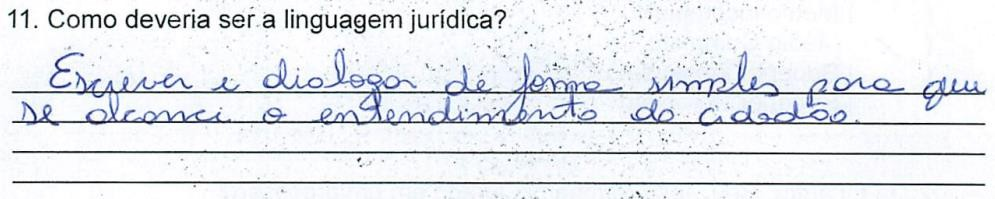 11. Como deveria ser a linguagem jurídica?
Escrever e dialogar de forma simples para que
se alcance o entendimento do cidadão.